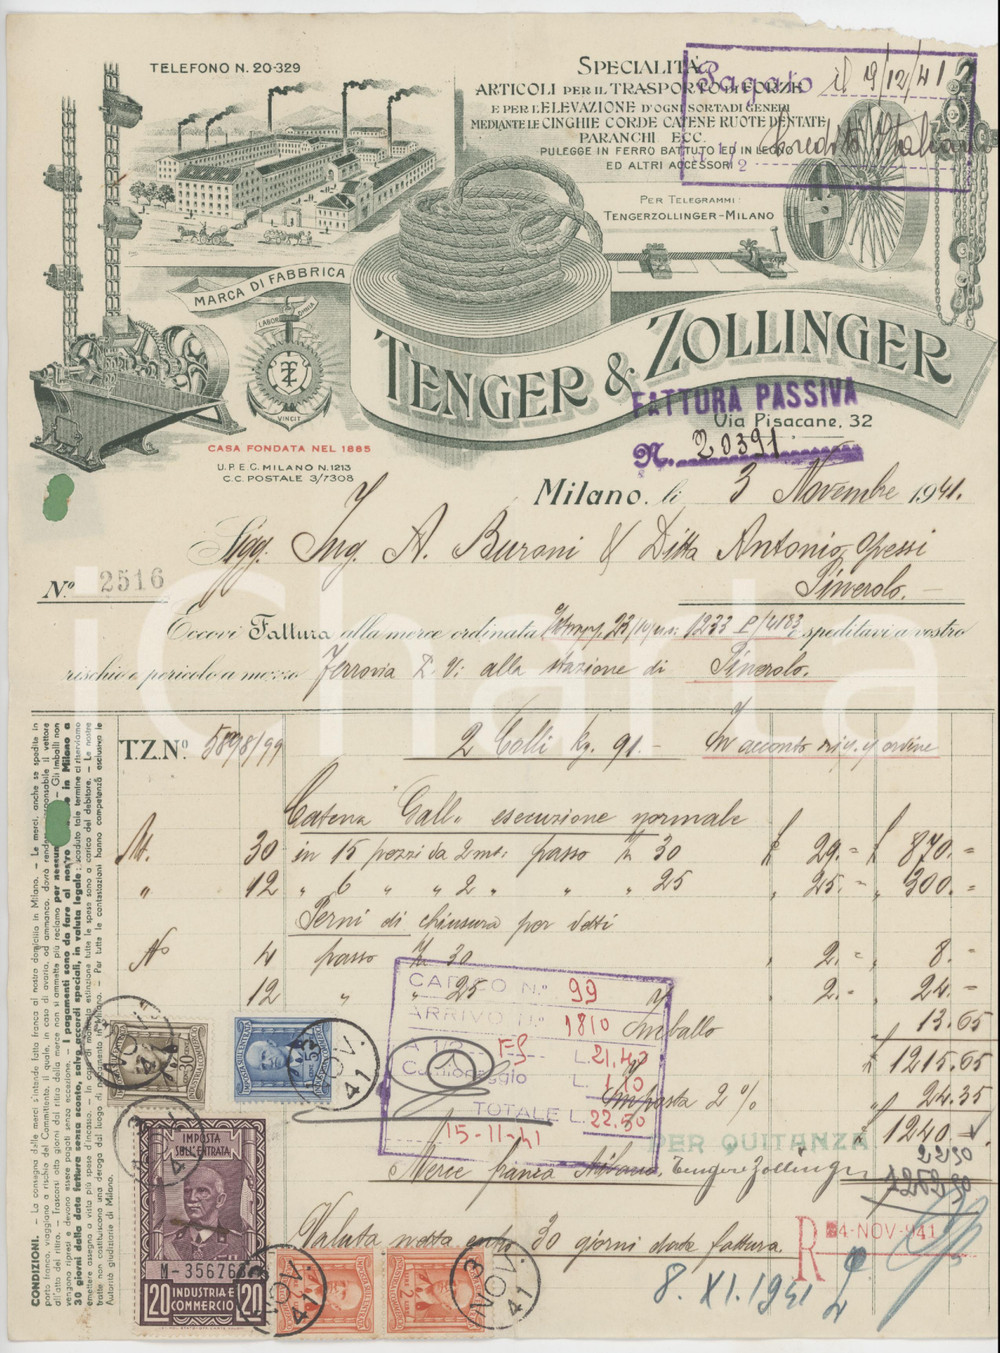 TELEFONO N. 20-329
SPECIALITÀ
ARTICOLI PER IL TRASPORTO DI FORZE
E PER L'ELEVAZIONE D'OGNI SORTA DI GENERI
MEDIANTE LE CINGHIE CORDE CATENE RUOTE DENTATE
PARANCHI ECC.
PULEGGE IN FERRO BATTUTO ED IN LEGNO
ED ALTRI ACCESSORI
Pagato il 9/12/41
Credito Italiano
PER TELEGRAMMI:
TENGERZOLLINGER-MILANO
MARCA DI FABBRICA
LABOR OMNIA
VINCIT
TENGER & ZOLLINGER
FATTURA PASSIVA
Via Pisacane, 32
N. 20391
CASA FONDATA NEL 1885
U.P.E.C. MILANO N. 1213
C.C. POSTALE 3/7308
Milano, li 3 Novembre 1941.
Sigg. Ing. A. Buroni & Ditta Antonio Opessi
Pinerolo.-
N.º 2516
Eccovi Fattura alla merce ordinata 23/10 1233 P/4183 e speditavi a vostro
rischio e pericolo a mezzo Ferrovia P.V. alla stazione di Pinerolo.
T.Z.Nº 5898/99
2 Colli Kg. 91.- In acconto ordine
Catena Galle esecuzione normale
Mt. 30 in 15 pezzi da 2 mt. passo 30 £ 29.= £ 870.=
" 12 " 6 " " 2 " " " 25 " 25.= " 300.=
Perni di chiusura per detti
No 4 passo 30 " 2.= " 8.=
12 " " 25 " 2.= " 24.=
Imballo 13.65
£ 1215.65
Imposta 2% " 24.35
£ 1240.-
22.50
1262.50
CARICO N.º 99
ARRIVO N.º 1810
FS L. 21,40
L. 1,10
TOTALE L. 22,50
15-11-41
PER QUITANZA
Merce franca Milano. Tenger e Zollinger
Valuta netta entro 30 giorni data fattura
R 24-NOV-941
8. XI. 1941
IMPOSTA
SULL'ENTRATA
M-35676
20 INDUSTRIA E COMMERCIO 20
3 NOV. 41
3 NOV. 41
3 NOV. 41
3 NOV. 41
CONDIZIONI. – La consegna delle merci s'intende fatta franca al nostro domicilio in Milano. – Le merci, anche se spedite in
porto franco, viaggiano a rischio del Committente, il quale, in caso di avaria, od ammanco, dovrà rendere responsabile il vettore
all'atto del ritiro. – Trascorsi otto giorni dal ritiro della merce non si ammette più reclamo per nessun – Gli imballi non
– I pagamenti sono da fare al nostro in Milano a
30 giorni dalla data fattura senza sconto, salvo accordi speciali, in valuta legale; scaduto tale termine ci riserviamo
emettere assegno a vista più spese d'incasso. – In caso di mancata estinzione tutte le spese sono a carico del debitore. – Le nostre
tratte non costituiscono una deroga dal luogo di pagamento in Milano. – Per tutte le contestazioni hanno competenza esclusiva le
Autorità giudiziarie di Milano.
iCharta